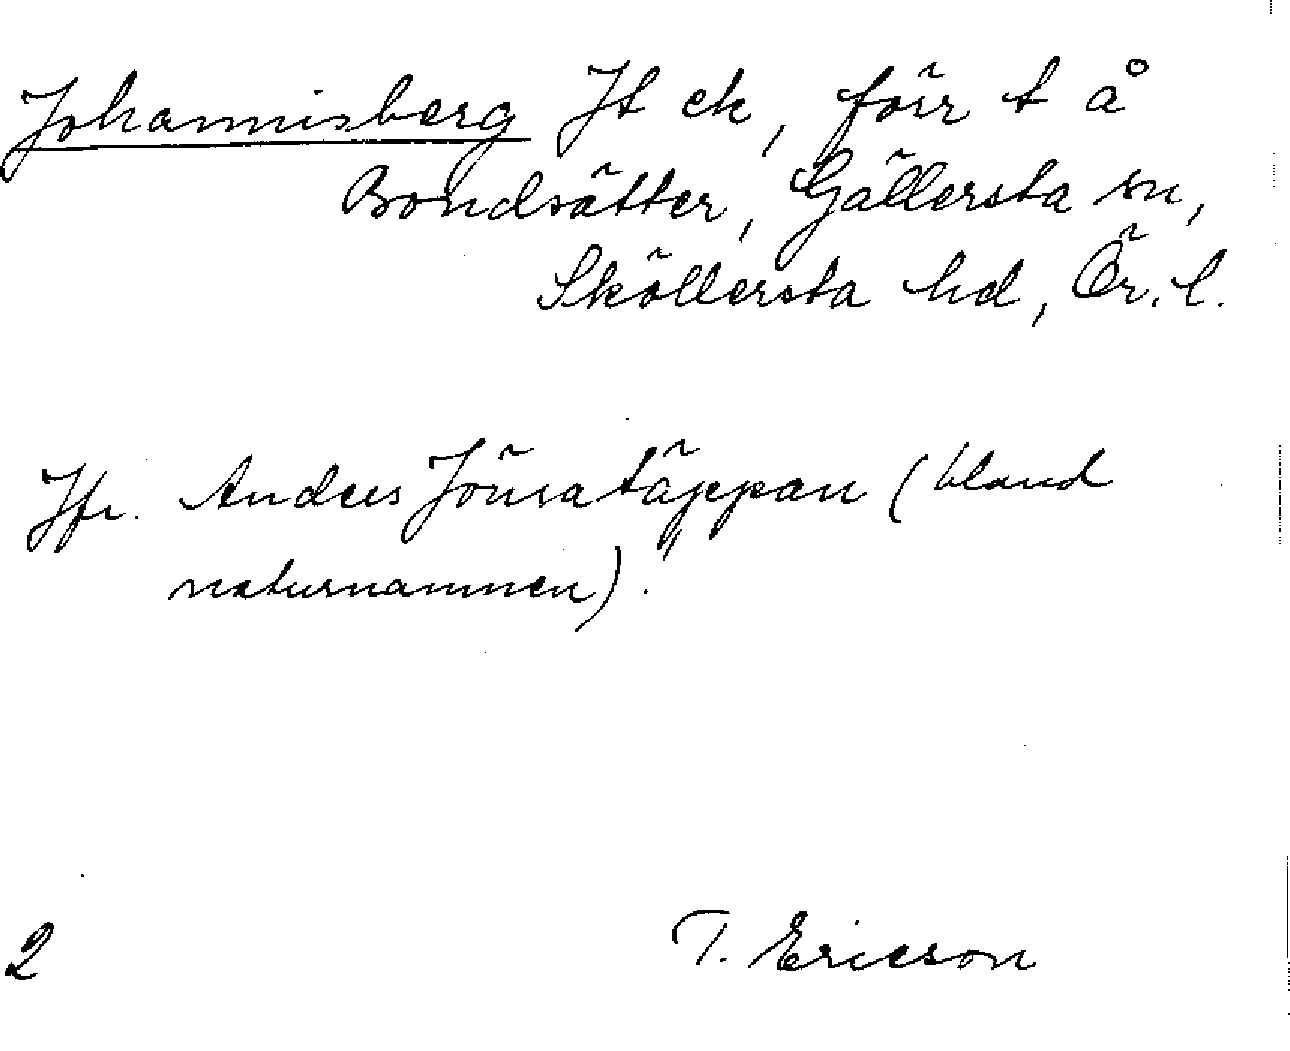 Johannisberg Jt ek, förr t å
Bondsätter, Gällersta sn,
Sköllersta hd, Ör. l.
Jfr. Anders Jönsatäppan (bland
naturnamnen).
2
T. Ericson